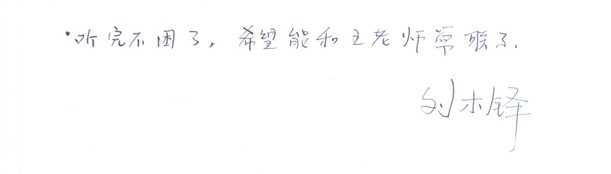 ·听完不困了，希望能和王老师常联了.
刘木铎